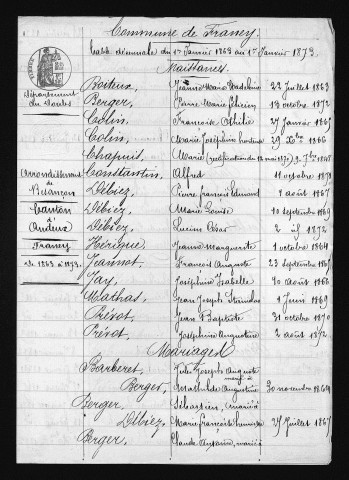 Commune de Franey.
Table décennale du 1er Janvier 1863 au 1er Janvier 1873.
Naissances.
Département du Doubs
Arrondissement de Besançon
Canton d'Audeux
Franey
de 1863 à 1873.
Boiteux, Jeanne Marie Madeleine 22 Juillet 1863
Berger, Pierre Marie 13 octobre 1872
Colin, Francoise Othilie 27 Janvier 1867
Colin, Marie Joséphine 29 Xbre 1866
Chapuis, Marie (rectification du 12 mai 1870) 2 7bre
Constantin, Alfred 11 octobre
Débiez, Pierre François Edmond 1 août 1867
Débiez, Marie Louise 10 septembre 1869
Débiez, Lucien César 2 1872
Hérique, Jeanne Marguerite 1 octobre 1864
Jeannot, François Auguste 23 septembre
Jay, Joséphine Isabelle 20 août 1866
Mathas, Jean Joseph Stanislas 1 Juin 1869
Prévot, Jean Baptiste 31 octobre 1870
Prévot, Joséphine Augustine 2 août 1872.
Mariages
Barberet, Jules Joseph Auguste
marié à
Berger, Mathilde Augustine 30 novembre
Berger, Sébastien, marié à
Débiez, Marie françoise 25 Juillet 1867
Berger, Claude Antoine, marié à